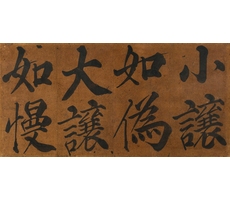 小讓
如偽
大讓
如慢